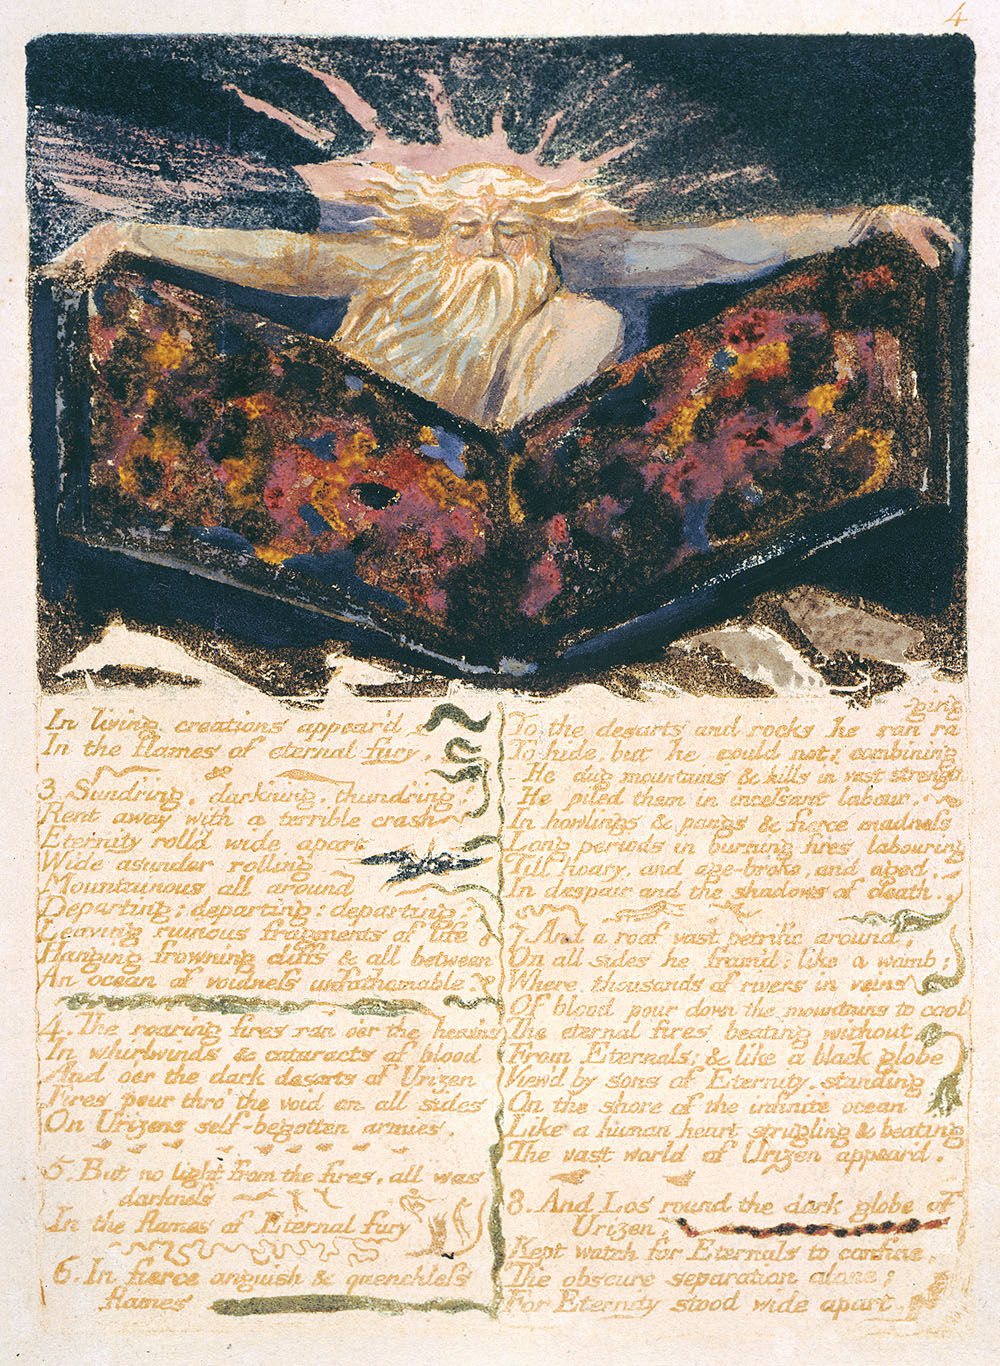 4
In living creations appear'd
In the flames of eternal fury.
3. Sundring, darkning, thundring!
Rent away with a terrible crash
Eternity roll'd wide apart
Wide asunder rolling
Mountainous all around
Departing; departing; departing:
Leaving ruinous fragments of life
Hanging frowning cliffs & all between
An ocean of voidness unfathomable
4. The roaring fires ran o'er the heav'ns
In whirlwinds & cataracts of blood
And o'er the dark desarts of Urizen
Fires pour thro' the void on all sides
On Urizens self-begotten armies.
5. But no light from the fires, all was
darkness
In the flames of Eternal fury
6. In fierce anguish & quenchless
flames
-ging
To the desarts and rocks he ran ra
To hide, but he could not: combining
He dug mountains & hills in vast strength
He piled them in incessant labour,
In howlings & pangs & fierce madness
Long periods in burning fires labouring
Till hoary, and age-broke, and aged,
In despair and the shadows of death.
7. And a roof vast petrific around,
On all sides he fram'd: like a womb;
Where thousands of rivers in veins
Of blood pour down the mountains to cool
The eternal fires beating without
From Eternals; & like a black globe
View'd by sons of Eternity, standing
On the shore of the infinite ocean
Like a human heart strugling & beating
The vast world of Urizen appear'd.
8. And Los round the dark globe of
Urizen,
Kept watch for Eternals to confine,
The obscure separation alone;
For Eternity stood wide apart,